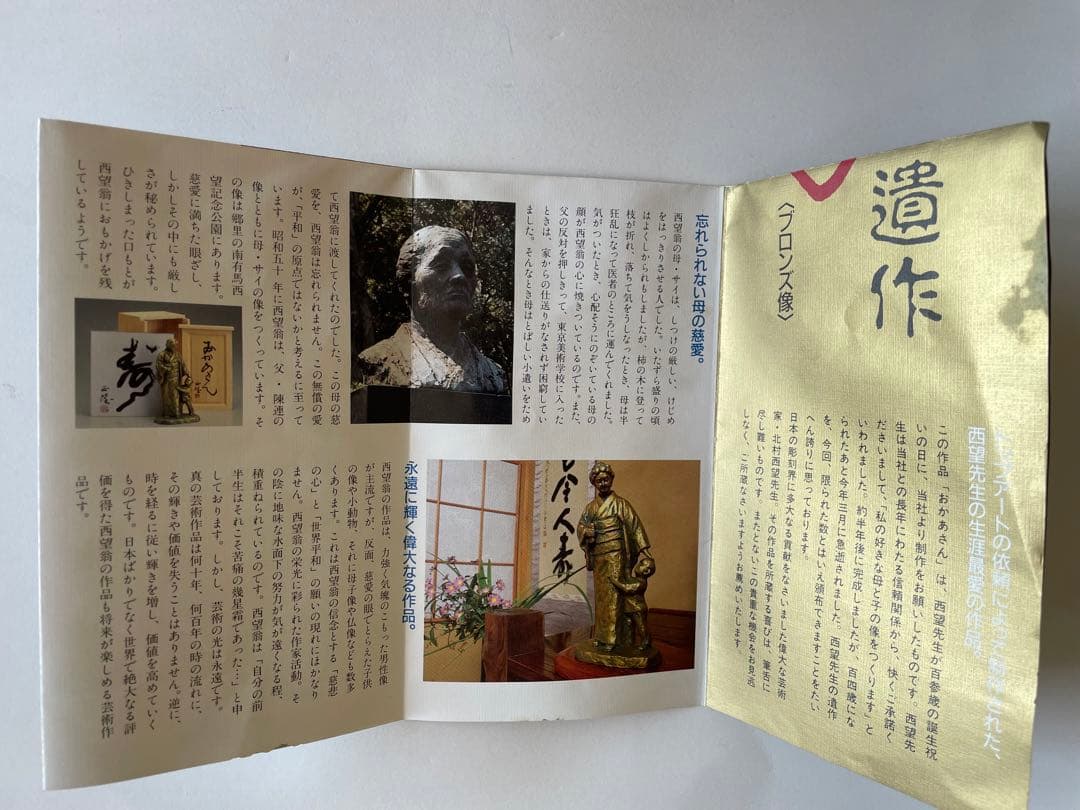 遺作
〈ブロンズ像〉
トップアートの依頼によって制作された、
西望先生の生涯最愛の作品。
この作品「おかあさん」は、西望先生が百参歳の誕生祝
いの日に、当社より制作をお願いしたものです。西望先
生は当社との長年にわたる信頼関係から、快くご承諾く
ださいまして、「私の好きな母と子の像をつくります」と
いわれました。約半年後に完成しましたが、百四歳にな
られたあと今年三月に急逝されました。西望先生の遺作
を、今回、限られた数とはいえ頒布できますことをたい
へん誇りに思っております。
日本の彫刻界に多大なる貢献をなさいました偉大な芸術
家・北村西望先生。その作品を所蔵する喜びは、筆舌に
尽し難いものです。またとないこの貴重な機会をお見逃
しなく、ご所蔵なさいますようお薦めいたします。
忘れられない母の慈愛。
西望翁の母・サイは、しつけの厳しい、けじめ
をはっきりさせる人でした。いたずら盛りの頃
はよくしかられもしましたが、柿の木に登って
枝が折れ、落ちて気をうしなったとき、母は半
狂乱になって医者のところに運んでくれました。
気がついたとき、心配そうにのぞいている母の
顔が西望翁の心に焼きついているのです。また、
父の反対を押しきって、東京美術学校に入った
ときは、家からの仕送りがなされず困窮してい
ました。そんなとき母はとぼしい小遣いをため
て西望翁に渡してくれたのでした。この母の慈
愛を、西望翁は忘れられません。この無償の愛
が、「平和」の原点ではないかと考えるに至って
います。昭和五十一年に西望翁は、父・陳連の
像とともに母・サイの像をつくっています。そ
の像は郷里の南有馬西
望記念公園にあります。
慈愛に満ちた眼ざし、
しかしその中にも厳し
さが秘められています。
ひきしまった口もとが
西望翁におもかげを残
しているようです。
永遠に輝く偉大なる作品。
西望翁の作品は、力強く気魄のこもった男性像
が主流ですが、反面、慈愛の眼でとらえた子供
の像や小動物、それに母子像や仏像なども数多
くあります。これは西望翁の信念とする「慈悲
の心」と「世界平和」の願いの現れにほかなり
ません。西望翁の栄光に彩られた作家活動。そ
の陰に地味な水面下の努力が気が遠くなる程、
積重ねられているのです。西望翁は「自分の前
半生はそれこそ苦痛の幾星霜であった…」と申
しております。しかし、芸術の光は永遠です。
真の芸術作品は何十年、何百年の時の流れに、
その輝きや価値を失うことはありません。逆に、
時を経るに従い輝きを増し、価値を高めていく
ものです。日本ばかりでなく世界で絶大なる評
価を得た西望翁の作品も将来が楽しめる芸術作
品です。
今人寿
寿
西望
おかあさん